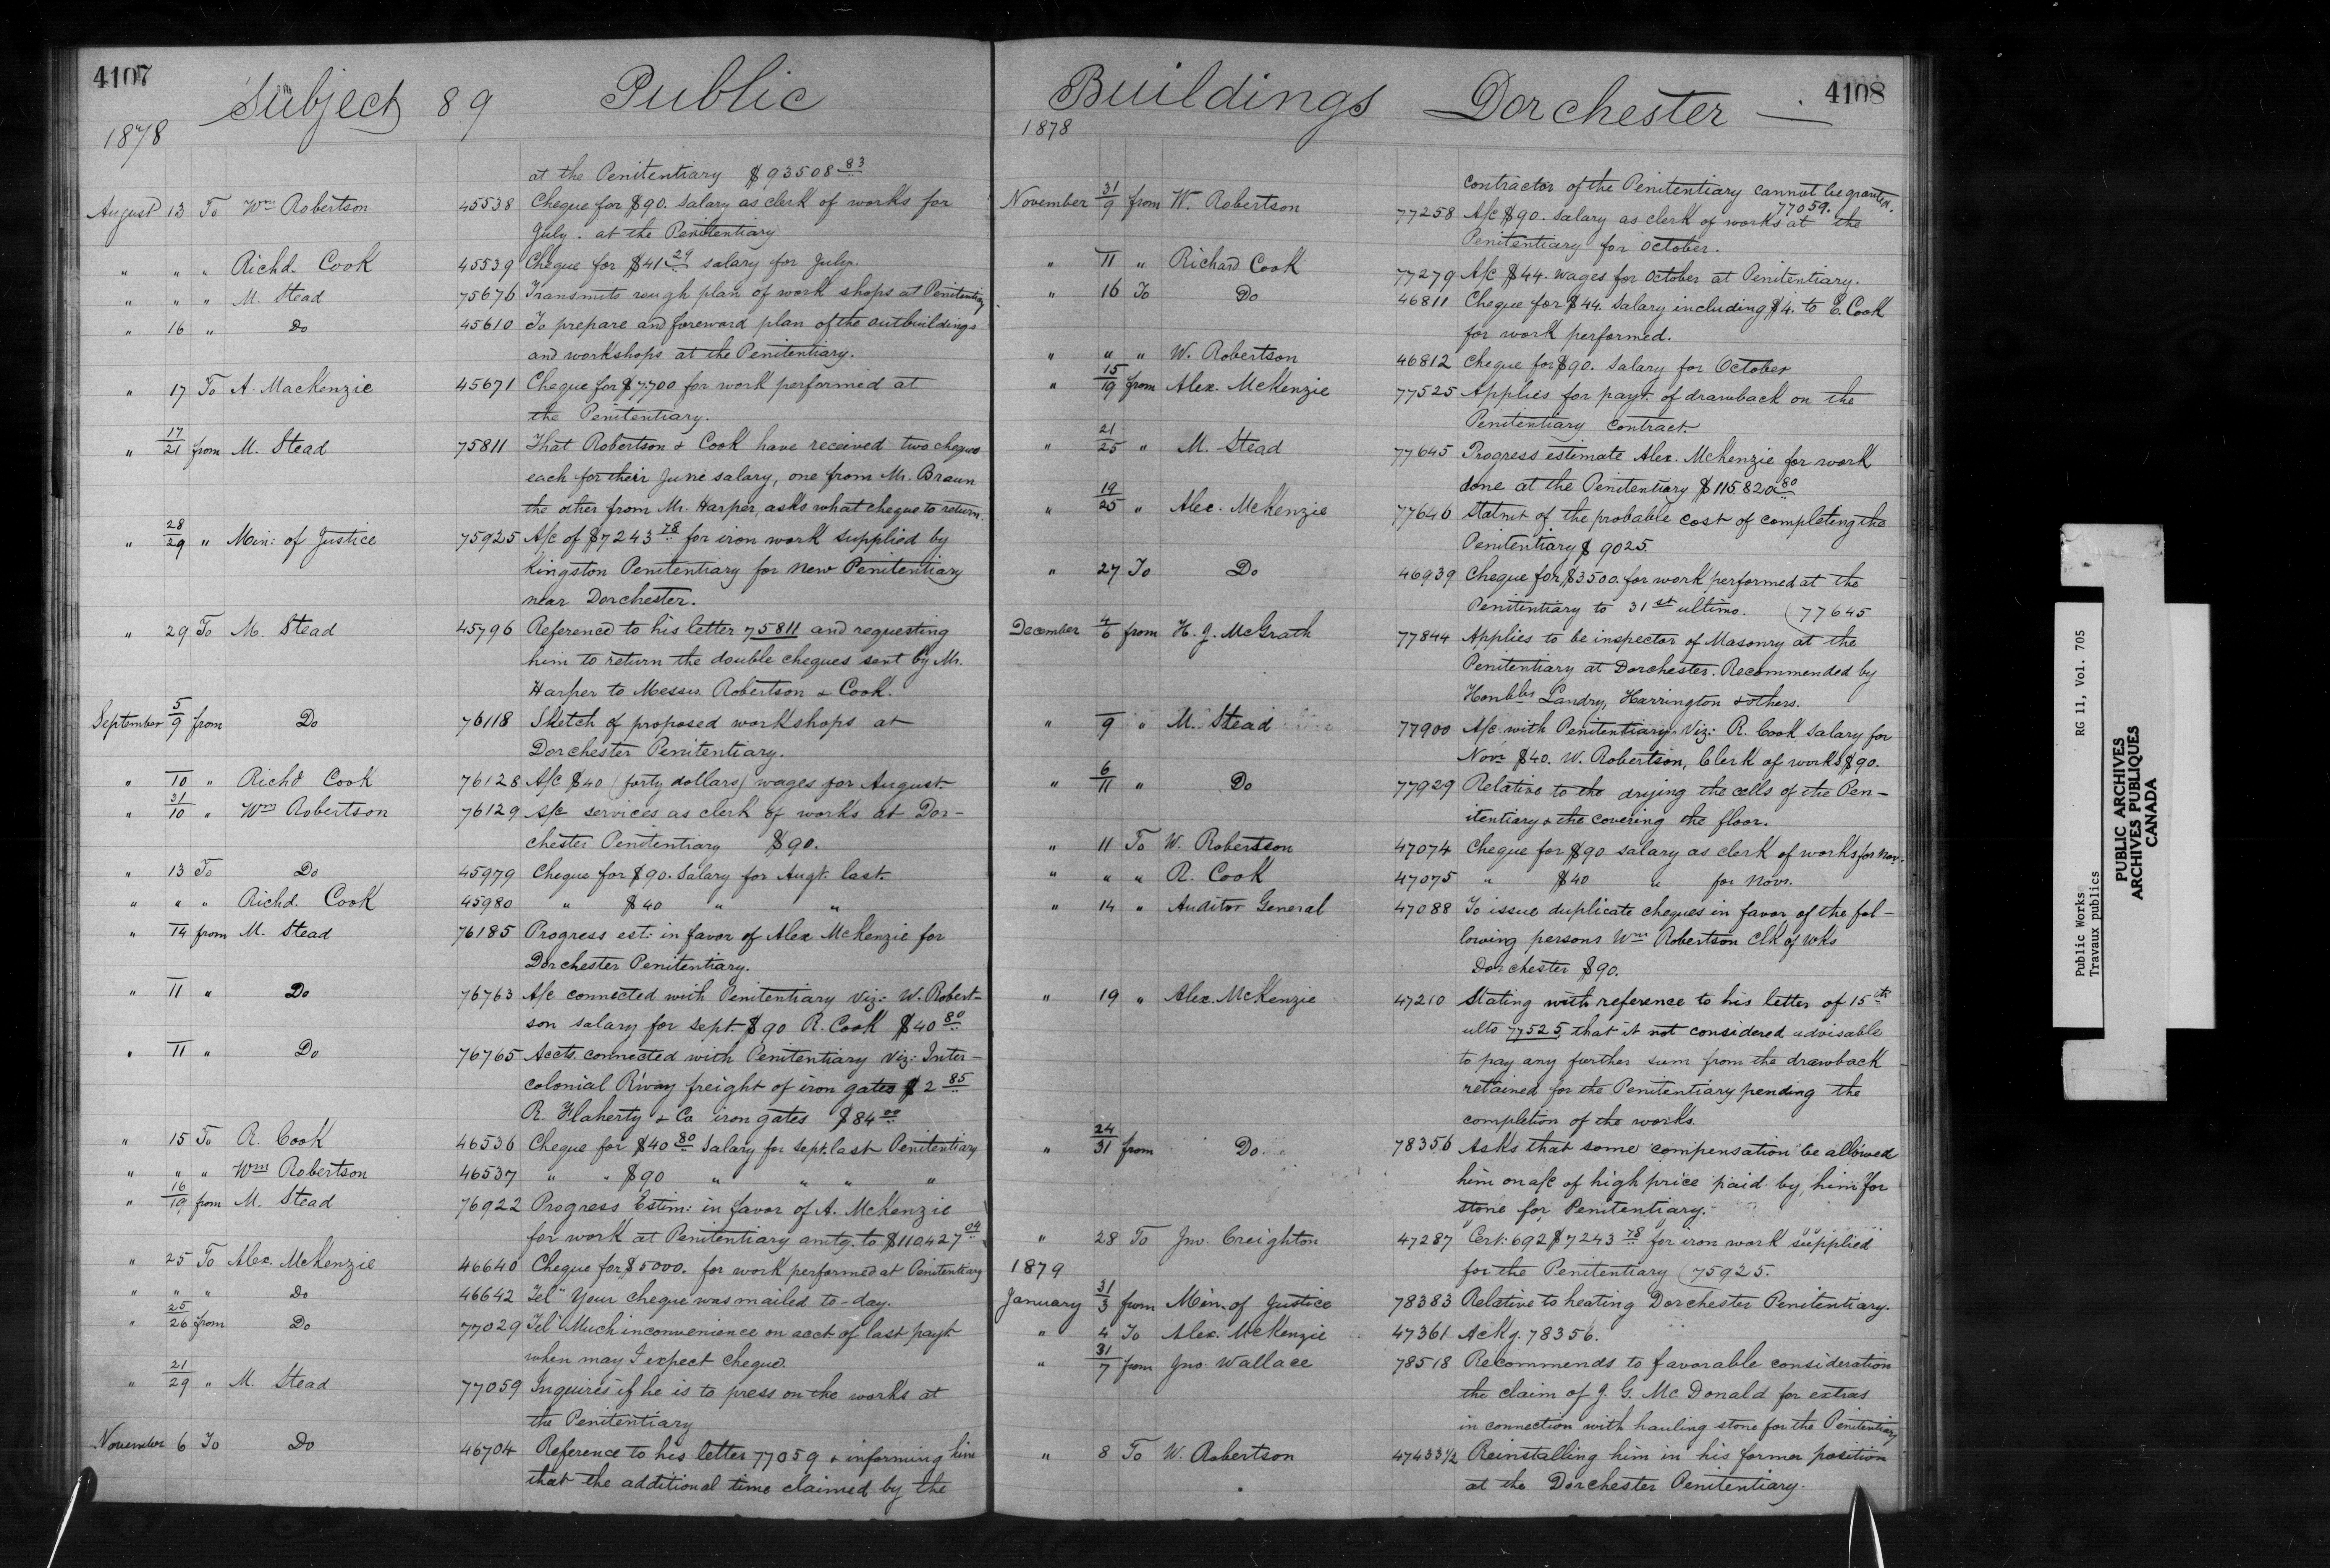 4107
Subject 89 Public
1878
at the Penitentiary $93508 83
August 13 To Wm Robertson 45538 Cheque for $90. Salary as clerk of works for
July. at the Penitentiary
" " " Richd. Cook 45539 Cheque for $41 29 salary for July.
" " " M. Stead 75676 Transmits rough plan of work shops at Penitentiary
" 16 " Do 45610 To prepare and foreword plan of the outbuildings
and workshops at the Penitentiary.
" 17 To A. MacKenzie 45671 Cheque for $7.700 for work performed at
the Penitentiary.
" 17/21 from M. Stead 75811 That Robertson & Cook have received two cheques
each for their June salary, one from Mr. Braun
the other from Mr. Harper, asks what cheque to return.
" 28/29 " Min: of Justice 75925 A/c of $7243 78 for iron work supplied by
Kingston Penitentiary for New Penitentiary
near Dorchester.
" 29 To M. Stead 45796 Reference to his letter 75811 and requesting
him to return the double cheques sent by Mr.
Harper to Messrs. Robertson & Cook.
September 5/9 from Do 76118 Sketch of proposed workshops at
Dorchester Penitentiary.
" 10 " Richd Cook 76128 A/c $40 (forty dollars) wages for August.
" 31/10 " Wm Robertson 76129 A/c services as clerk of works at Dor-
chester Penitentiary $90.
" 13 To Do 45979 Cheque for $90. Salary for Augt. last.
" " " Richd. Cook 45980 " $40 " "
" 14 from M. Stead 76185 Progress est: in favor of Alex McKenzie for
Dorchester Penitentiary.
" 11 " Do 76763 A/c connected with Penitentiary Viz: W. Robert-
son salary for Sept. $90 R. Cook $40 80
" 11 " Do 76765 Accts. connected with Penitentiary Viz: Inter-
colonial R'way freight of iron gates $2 85
R. Flaherty & Co iron gates $84 00
" 15 To R. Cook 46536 Cheque for $40 80 Salary for Sept. last Penitentiary
" " " Wm Robertson 46537 " " $90 " " " "
" 16/19 from M. Stead 76922 Progress Estim: in favor of A. McKenzie
for work at Penitentiary amtg. to $110,427 04
" 25 To Alex. McKenzie 46640 Cheque for $5000. for work performed at Penitentiary
" " " Do 46642 Tel" Your cheque was mailed to-day.
" 25/26 from Do 77029 Tel" Much inconvenience on acct of last payt
when may I expect cheque.
" 21/29 " M. Stead 77059 Inquires if he is to press on the works at
the Penitentiary
November 6 To Do 46704 Reference to his letter 77059 & informing him
that the additional time claimed by the
4108
Buildings Dorchester —
1878
contractor of the Penitentiary cannot be granted.
77059.
November 31/9 from W. Robertson 77258 A/c $90. Salary as clerk of works at the
Penitentiary for October.
" 11 " Richard Cook 77279 A/c $44. wages for October at Penitentiary.
" 16 To Do 46811 Cheque for $44. Salary including $4. to E. Cook
for work performed.
" " " W. Robertson 46812 Cheque for $90. Salary for October
" 15/19 from Alex. McKenzie 77525 Applies for payt. of drawback on the
Penitentiary Contract.
" 21/25 " M. Stead 77645 Progress estimate Alex. McKenzie for work
done at the Penitentiary $115820 80
" 19/25 " Alex. McKenzie 77646 Statmt of the probable cost of completing the
Penitentiary $9025.
" 27 To Do 46939 Cheque for $3500. for work performed at the
Penitentiary to 31st ultimo. (77645
December 4/6 from H. J. McGrath 77844 Applies to be inspector of Masonry at the
Penitentiary at Dorchester. Recommended by
Honbles Landry, Harrington & others.
" 9 " M. Stead 77900 A/c with Penitentiary Viz: R. Cook Salary for
Novr $40. W. Robertson, Clerk of works $90.
" 6/11 " Do 77929 Relative to the drying the cells of the Pen-
itentiary & the covering the floor.
" 11 To W. Robertson 47074 Cheque for $90 salary as clerk of works for Novr.
" " " R. Cook 47075 " $40 " for Novr.
" 14 " Auditor General 47088 To issue duplicate cheques in favor of the fol-
lowing persons Wm Robertson Clk of Wks
Dorchester $90.
" 19 " Alex. McKenzie 47210 Stating with reference to his letter of 15th
ulto 77525, that it not considered advisable
to pay any further sum from the drawback
retained for the Penitentiary pending the
completion of the works.
" 24/31 from Do 78356 Asks that some compensation be allowed
him on a/c of high price paid by him for
stone for Penitentiary.
" 28 To Jno. Creighton 47287 Cert: 692 $7243 78 for iron work supplied
for the Penitentiary (75925.
1879
January 31/3 from Min. of Justice 78383 Relative to heating Dorchester Penitentiary.
" 4 To Alex. McKenzie 47361 Ackg. 78356.
" 31/7 from Jno. Wallace 78518 Recommends to favorable consideration
the claim of J. G. McDonald for extras
in connection with hauling stone for the Penitentiary
" 8 To W. Robertson 47433 1/2 Reinstalling him in his former position
at the Dorchester Penitentiary.
Public Works RG 11, Vol. 705
Travaux publics
PUBLIC ARCHIVES
ARCHIVES PUBLIQUES
CANADA